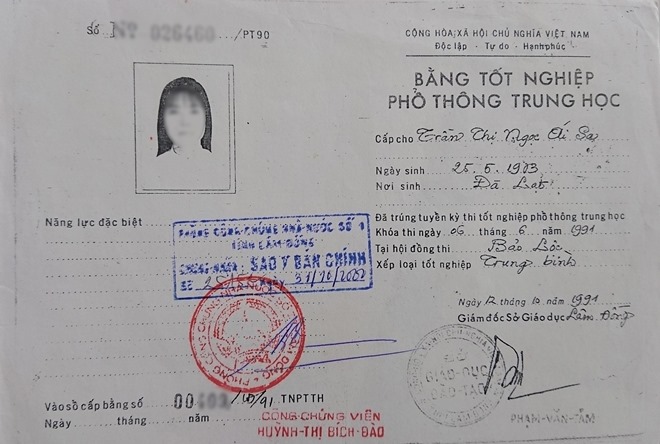 Số NT 026460 /PT90
CỘNG HÒA XÃ HỘI CHỦ NGHĨA VIỆT NAM
Độc lập - Tự do - Hạnh phúc
BẰNG TỐT NGHIỆP
PHỔ THÔNG TRUNG HỌC
Cấp cho Trần Thị Ngọc Ái Sa
Ngày sinh 25.5.1973
Nơi sinh Đà Lạt
Đã trúng tuyển kỳ thi tốt nghiệp phổ thông trung học
Khóa thi ngày 06 tháng 6 năm 1991
Tại hội đồng thi Bảo Lộc
Xếp loại tốt nghiệp Trung bình
Ngày 12 tháng 10 năm 1991
Giám đốc Sở Giáo dục Lâm Đồng
GIÁO-DỤC
ĐÀO-TẠO
PHẠM-VĂN-TẤM
Năng lực đặc biệt
PHÒNG CÔNG CHỨNG NHÀ NƯỚC SỐ 1
TỈNH LÂM ĐỒNG
CHỨNG NHẬN: SAO Y BẢN CHÍNH
SỐ NGÀY 31/10/2002
Vào sổ cấp bằng số 00 /91 TNPTTH
Ngày tháng năm
CÔNG CHỨNG VIÊN
HUỲNH-THỊ BÍCH-ĐÀO